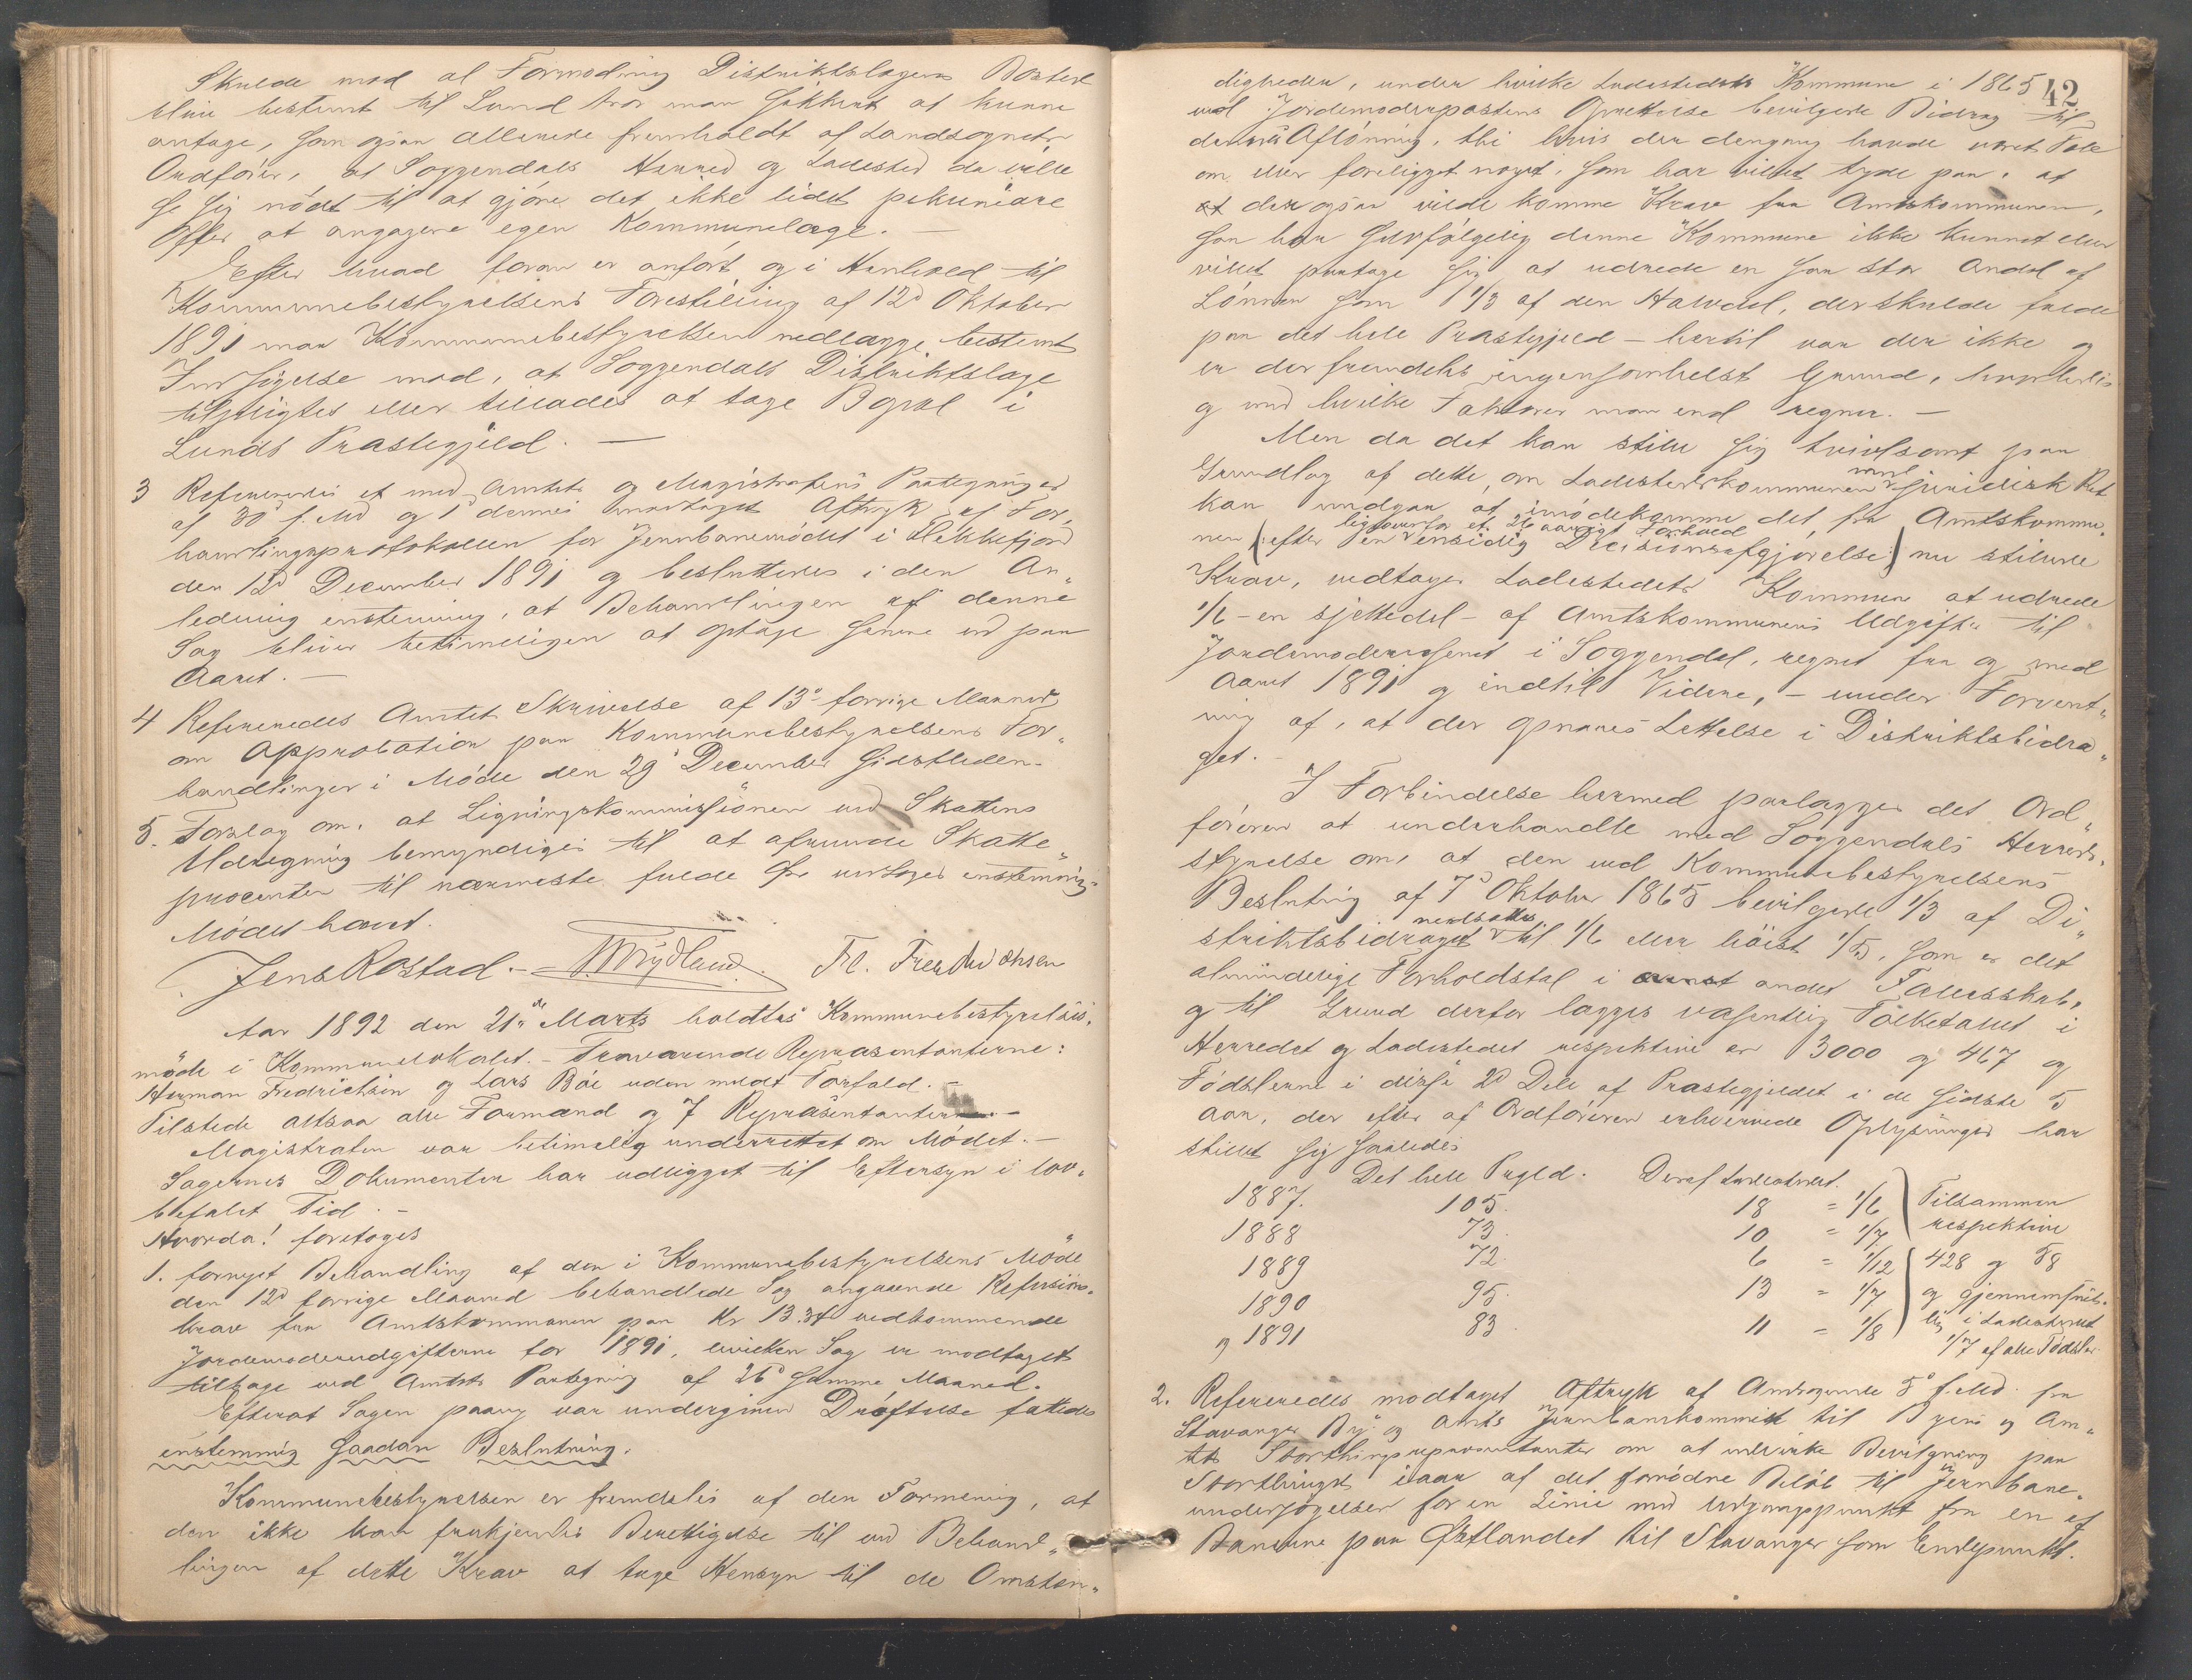 Skulde mod al Formodning Distriktslægens Bosted
blive bestemt til Lund tror man sikkert at kunne
antage, som ogsaa allerede fremholdt af Landsognets
Ordfører, at Soggendals Herred og Ladested da vilde
se sig nødt til at gjøre det ikke lidet pekuniære
Offer at angagere egen Kommunelæge. —
Efter hvad foran er anført og i Henhold til
Kommunebestyrelsens Forestilling af 12d Oktober
1891 maa Kommunebestyrelsen nedlægge bestemt
Indsigelse mod, at Soggendals Distriktslæge
tilpligtes eller tillades at tage Bopæl i
Lunds Præstegjeld. —
3 Refereredes et med Amtets og Magistratens Paategninger
af 30d f. Md og 1d dennes modtaget Aftryk af For„
handlingsprotokollen for Jernbanemødet i Flekkefjord
den 12d December 1891 og besluttedes i den An„
ledning enstemmig, at Behandlingen af denne
Sag bliver betimeligen at optage senere ud paa
Aaret. —
4 Refereredes Amtets Skrivelse af 13d forrige Maaned
om Approbation paa Kommunebestyrelsens For„
handlinger i Møde den 29d December sidstleden.
5. Forslag om, at Ligningskommissionen ved Skattens
Udregning bemyndiges til at afrunde Skatte„
procenten til nærmeste fulde Øre vedtoges enstemmig.
Mødet hævet.
Jens Rostad. — Frydlund. Fr. Fredrichsen
Aar 1892 den 21de Marts holdtes Kommunebestyrelses„
møde i Kommunelokalet. — Fraværende Repræsentanterne:
Herman Fredrichsen og Lars Bøe uden meldt Forfald. —
Tilstede altsaa alle Formænd og 7 Repræsentanter. —
Magistraten var betimelig underrettet om Mødet. —
Sagernes Dokumenter har udligget til Eftersyn i lov„
befalet Tid. —
Hvorda! foretoges
1. fornyet Behandling af den i Kommunebestyrelsens Møde
den 12d forrige Maaned behandlede Sag angaaende Refusions„
krav fra Amtskommunen paa Kr 13.34 vedkommende
Jordemoderudgifterne for 1891, hvilken Sag er modtaget
tilbage med Amtets Paategning af 26d samme Maaned.
Efterat Sagen paany var undergiven Drøftelse fattedes
enstemmig saadan Beslutning.
Kommunebestyrelsen er fremdeles af den Formening, at
den ikke kan frakjendes Berettigelse til ved Behand„
lingen af dette Krav at tage Hensyn til de Omstæn„
42
digheder, under hvilke Ladestedets Kommune i 1865
ved Jordemoderpostens Oprettelse bevilgede Bidrag til
dennes Aflønning, thi hvis der dengang havde været Tale
om eller foreligget noget, som har villet tyde paa, at
der ogsaa vilde komme Krav fra Amtskommunen,
saa har selvfølgelig denne Kommune ikke kunnet eller
villet paatage sig at udrede en saa stor Andel af
Lønnen som 1/3 af den Halvdel, der skulde falde
paa det hele Præstegjeld — hertil var der ikke og
er der fremdeles ingensomhelst Grund, hvorledes
og med hvilke Faktorer man end regner. —
Men da det kan stille sig tvivlsomt paa
Grundlag af dette, om Ladestedskommunen med juridisk Ret
kan undgaa at imødekomme det, fra Amtskommu„
ligeoverfor et 26 aarigt Forhold
nen (: efter en ensidig Decisionsafgjørelse :) nu stillede
Krav, vedtager Ladestedets Kommune at udrede
1/6 – en sjettedel – af Amtskommunens Udgifter til
Jordemodervæsenet i Soggendal, regnet fra og med
Aaret 1891 og indtil Videre, – under Forvent„
ning af, at der opnaaes Lettelse i Distriktsbidra„
get. —
I Forbindelse hermed paalægges det Ord„
føreren at underhandle med Soggendals Herreds„
styrelse om, at den ved Kommunebestyrelsens
Beslutning af 7d Oktober 1865 bevilgede 1/3 af Di„
striktsbidraget nedsættes til 1/6 eller høist 1/5, som er det
almindelige Forholdstal i andet Fællesskab,
og til Grund derfor lægges væsentlig Folketallet i
Herredet og Ladestedet respektive er 3000 og 467 og
Fødslerne i disse 2d Dele af Præstegjeldet i de sidste 5
Aar, der efter af Ordføreren erhvervede Oplysninger har
stillet sig saaledes
Det hele Prgjeld. Deraf Ladestedet.
1887. 105. 18 = 1/6 Tilsammen
1888 73. 10 = 1/7 respektive
1889 72. 6 = 1/12 428 og 58
1890 95. 13 = 1/7 og gjennemsnit„
og 1891 83 11 = 1/8 lig i Ladestedet
1/7 af alle Fødsler.
2. Refereredes modtaget Aftryk af Andragende 5d f. Md. fra
Stavanger By og Amts Jernbanekomité til Byens og Am„
tets Storthingsrepræsentanter om at udvirke Bevilgning paa
Storthinget iaar af det fornødne Beløb til Jernbane„
undersøgelser for en Linie med Udgangspunkt fra en af
Banerne paa Østlandet til Stavanger som Endepunkt.